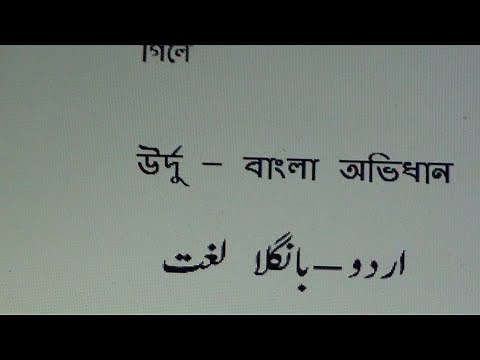 উর্দু – বাংলা অভিধান
اردو – بانگلا لغت